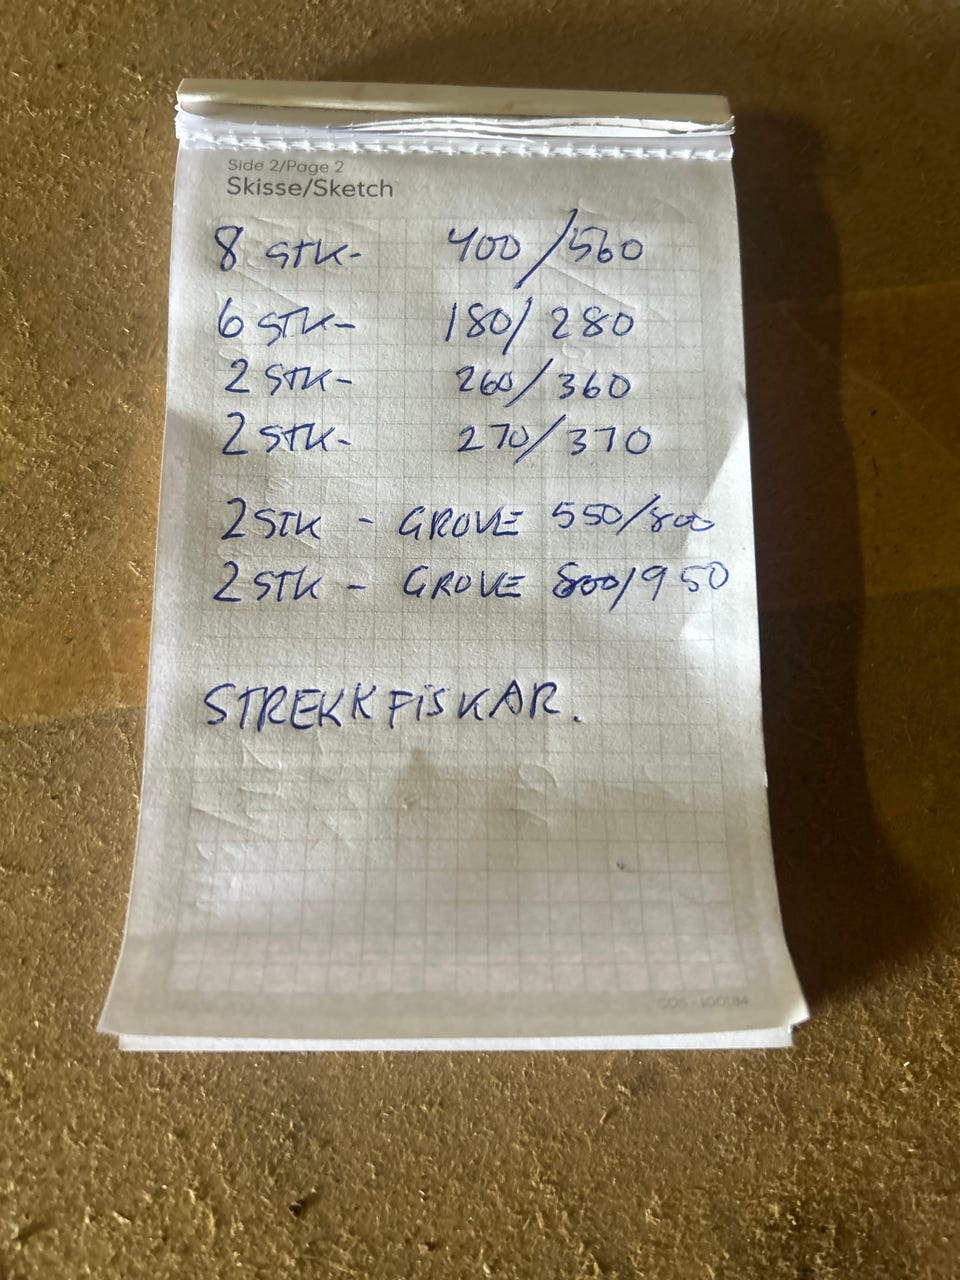 Side 2/Page 2
Skisse/Sketch
8 STK- 400/560
6 STK- 180/280
2 STK- 260/360
2 STK- 270/370
2 STK - GROVE 550/800
2 STK - GROVE 800/950
STREKKFISKAR.